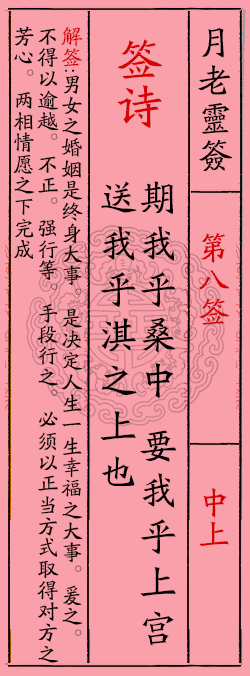 月老靈簽
第八签
中上
签诗
期我乎桑中 要我乎上宫
送我乎淇之上也
解签:男女之婚姻是终身大事。是决定人生一生幸福之大事。爰之。
不得以逾越。不正。强行等。手段行之。必须以正当方式取得对方之
芳心。两相情愿之下完成